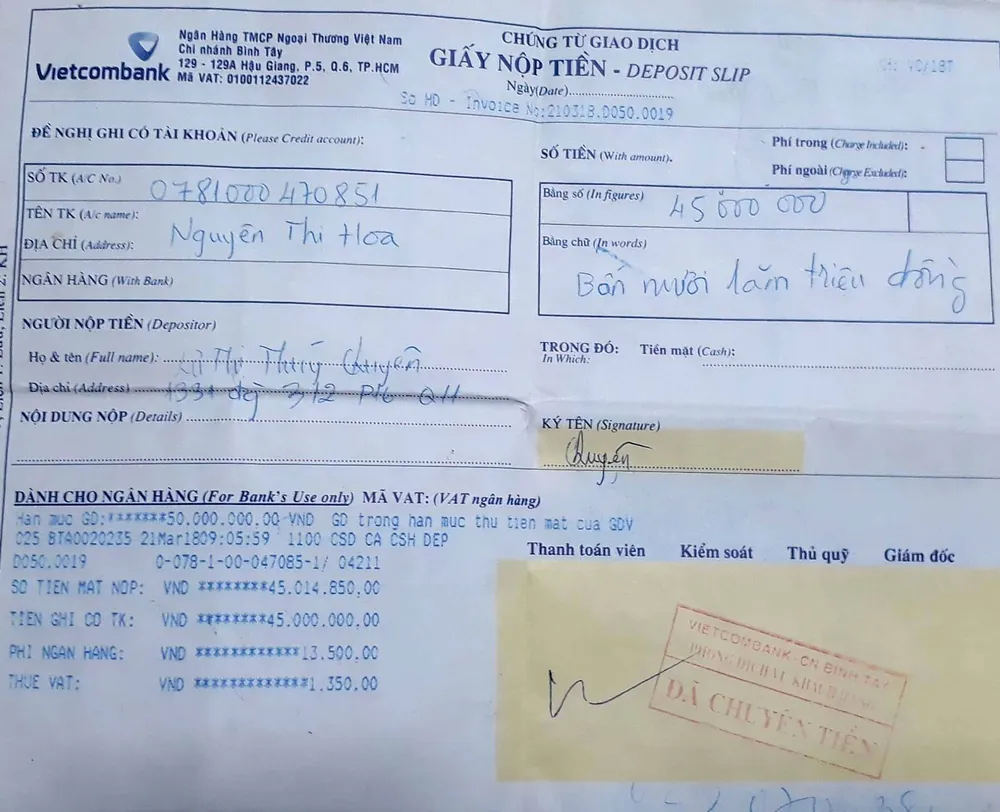 Vietcombank
Ngân Hàng TMCP Ngoại Thương Việt Nam
Chi nhánh Bình Tây
129 - 129A Hậu Giang, P.5, Q.6, TP.HCM
Mã VAT: 0100112437022
CHỨNG TỪ GIAO DỊCH
GIẤY NỘP TIỀN - DEPOSIT SLIP
Ngày(Date)
So HD - Invoice No:210318.D050.0019
ĐỀ NGHỊ GHI CÓ TÀI KHOẢN (Please Credit account):
SỐ TK (A/C No.) 0781000470851
TÊN TK (A/c name):
Nguyễn Thi Hoa
ĐỊA CHỈ (Address):
NGÂN HÀNG (With Bank)
SỐ TIỀN (With amount).
Phí trong (Charge Included):
Phí ngoài (Charge Excluded):
Bằng số (In figures) 45 000 000
Bằng chữ (In words)
Bốn mươi lăm triệu đồng
NGƯỜI NỘP TIỀN (Depositor)
Họ & tên (Full name): Thị Thuý Quyên
Địa chỉ (Address) 3/2
NỘI DUNG NỘP (Details)
TRONG ĐÓ: Tiền mặt (Cash):
In Which:
KÝ TÊN (Signature)
Quyên
DÀNH CHO NGÂN HÀNG (For Bank's Use only) MÃ VAT: (VAT ngân hàng)
Han muc GD:*******50.000.000.00 VND GD trong han muc thu tien mat cua GDV
025 BTA0020235 21Mar1809:05:59 1100 CSD CA CSH DEP
D050.0019 0-078-1-00-047085-1/ 04211
SO TIEN MAT NOP: VND ********45.014.850.00
TIEN GHI CO TK: VND ********45.000.000.00
PHI NGAN HANG: VND ************13.500.00
THUE VAT: VND *************1.350.00
Thanh toán viên Kiểm soát Thủ quỹ Giám đốc
VIETCOMBANK-CN BINH TAY
PHÒNG DỊCH VỤ KHÁCH HÀNG
ĐÃ CHUYỂN TIỀN